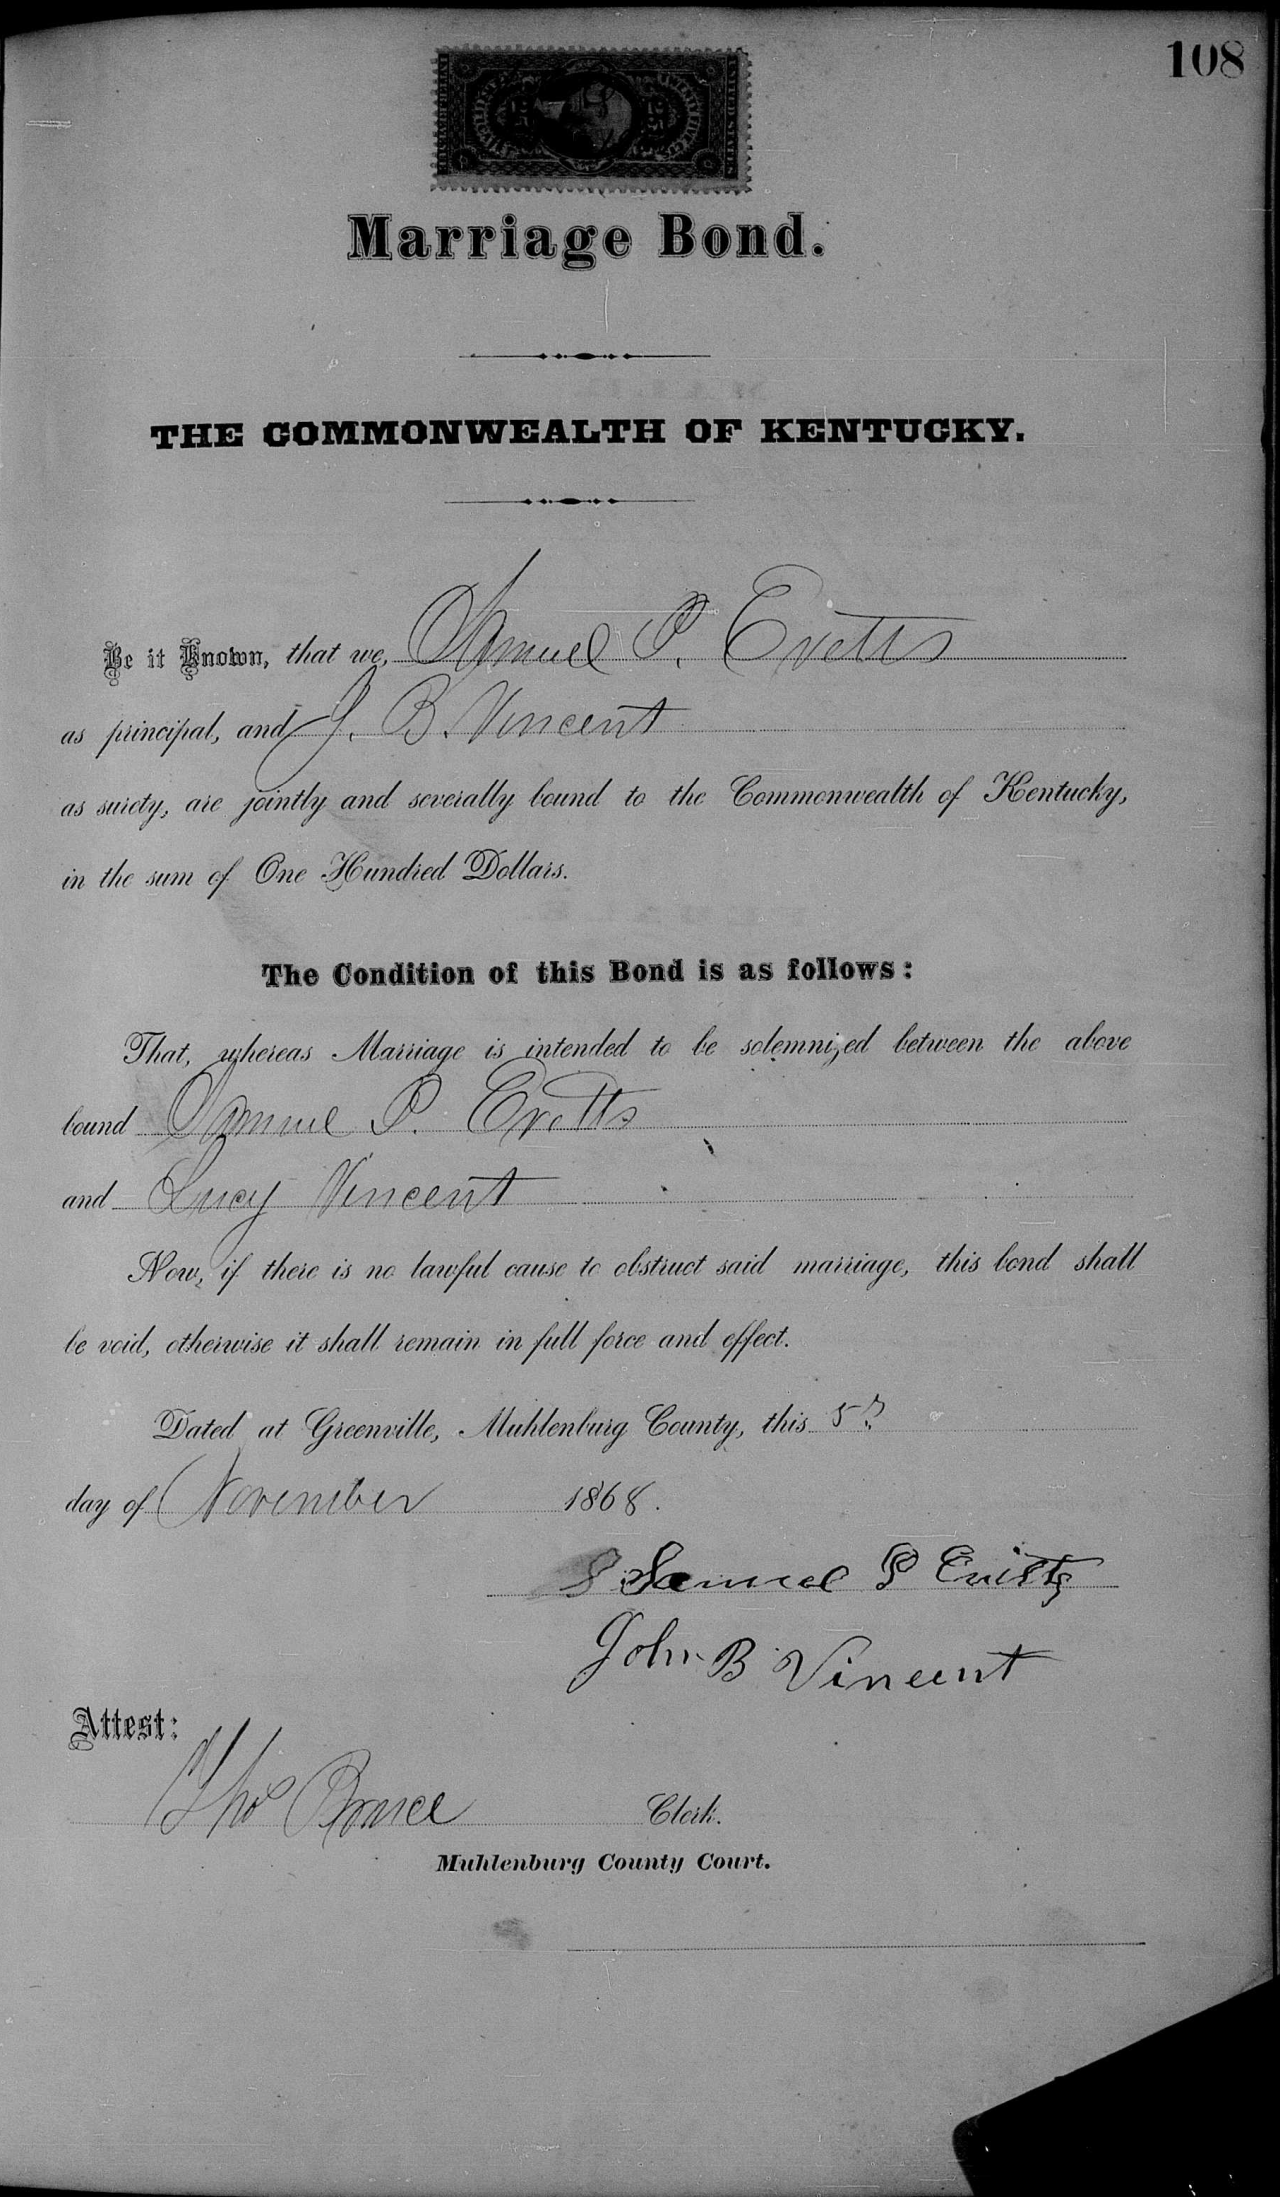 108
Marriage Bond.
THE COMMONWEALTH OF KENTUCKY.
Be it Known, that we, Samuel P. Evetts
as principal, and J. B. Vincent
as surety, are jointly and severally bound to the Commonwealth of Kentucky,
in the sum of One Hundred Dollars.
The Condition of this Bond is as follows:
That, whereas Marriage is intended to be solemnized between the above
bound Samuel P. Evetts
and Lucy Vincent
Now, if there is no lawful cause to obstruct said marriage, this bond shall
be void, otherwise it shall remain in full force and effect.
Dated at Greenville, Muhlenburg County, this 5
day of November 1868.
Samuel P Evitts
John B Vincent
Attest:
Tho Bruce Clerk.
Muhlenburg County Court.